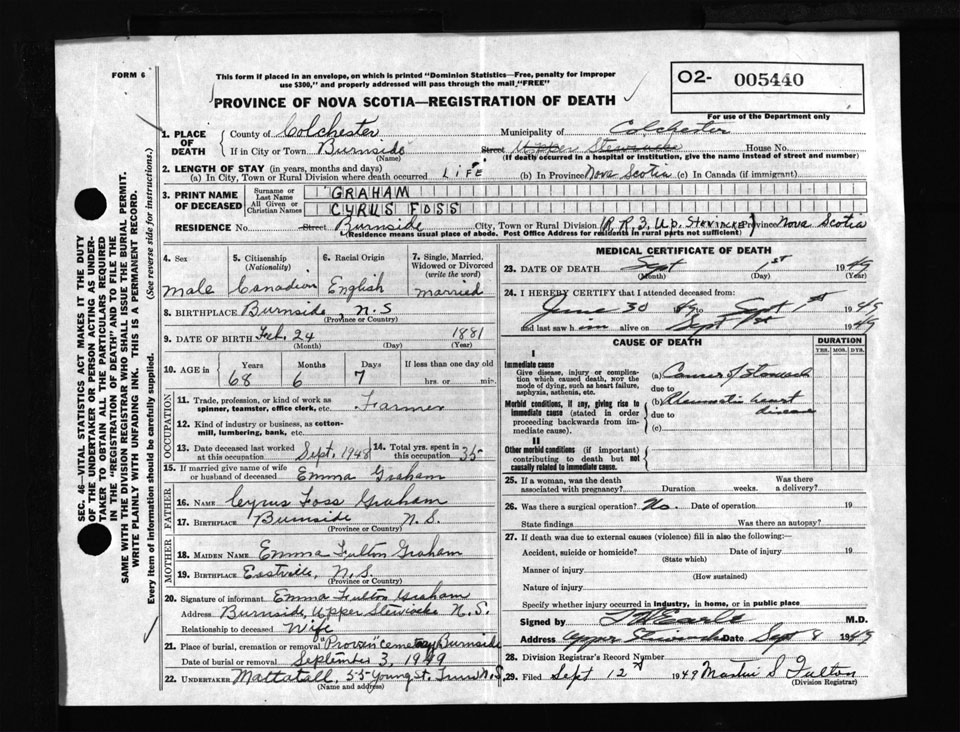 FORM 6
This form if placed in an envelope, on which is printed "Dominion Statistics—Free, penalty for improper
use $300," and properly addressed will pass through the mail "FREE"
O2- 005440
For use of the Department only
PROVINCE OF NOVA SCOTIA—REGISTRATION OF DEATH
1. PLACE OF DEATH
County of Colchester Municipality of Colchester
If in City or Town Burnside Street Upper Stewiacke House No.
(Name) (If death occurred in a hospital or institution, give the name instead of street and number)
2. LENGTH OF STAY (in years, months and days)
(a) In City, Town or Rural Division where death occurred LIFE (b) In Province Nova Scotia (c) In Canada (if immigrant)
3. PRINT NAME OF DECEASED
Surname or Last Name GRAHAM
All Given or Christian Names CYRUS FOSS
RESIDENCE No. Street Burnside City, Town or Rural Division (R.R.3, Up. Stewiacke) Province Nova Scotia
(Residence means usual place of abode. Post Office Address for residents in rural parts not sufficient)
4. Sex male
5. Citizenship (Nationality) Canadian
6. Racial Origin English
7. Single, Married, Widowed or Divorced (write the word) married
8. BIRTHPLACE Burnside, N.S
(Province or Country)
9. DATE OF BIRTH Feb. 24 1881
(Month) (Day) (Year)
10. AGE in Years Months Days If less than one day old
68 6 7 hrs. or min.
OCCUPATION
11. Trade, profession, or kind of work as spinner, teamster, office clerk, etc. Farmer
12. Kind of industry or business, as cotton-mill, lumbering, bank, etc.
13. Date deceased last worked at this occupation Sept. 1948
14. Total yrs. spent in this occupation 35
15. If married give name of wife or husband of deceased Emma Graham
FATHER
16. NAME Cyrus Foss Graham
17. BIRTHPLACE Burnside N.S.
(Province or Country)
MOTHER
18. MAIDEN NAME Emma Fulton Graham
19. BIRTHPLACE Eastville, N.S.
(Province or Country)
20. Signature of informant Emma Fulton Graham
Address Burnside, Upper Stewiacke N.S.
Relationship to deceased Wife
21. Place of burial, cremation or removal "Proven" Cemetery Burnside
Date of burial or removal September 3, 1949
22. UNDERTAKER Mattatall, 55 Young St. Truro N.S.
(Name and address)
MEDICAL CERTIFICATE OF DEATH
23. DATE OF DEATH Sept 1st 1949
(Month) (Day)
24. I HEREBY CERTIFY that I attended deceased from:
June 30 49 to Sept 1st 1949
and last saw him alive on Sept 1st 1949
CAUSE OF DEATH DURATION
YRS. MOS. DYS.
I
Immediate cause
Give disease, injury or complication which caused death, NOT the mode of dying, such as heart failure, asphyxia, asthenia, etc.
(a) Cancer of Stomach
due to
Morbid conditions, if any, giving rise to immediate cause (stated in order proceeding backwards from immediate cause).
(b) Rheumatic heart disease
due to
(c)
II
Other morbid conditions (if important) contributing to death but not causally related to immediate cause.
25. If a woman, was the death associated with pregnancy? Duration weeks. Was there a delivery?
26. Was there a surgical operation? No. Date of operation 19
State findings Was there an autopsy?
27. If death was due to external causes (violence) fill in also the following:—
Accident, suicide or homicide? Date of injury 19
(State which)
Manner of injury
(How sustained)
Nature of injury
Specify whether injury occurred in industry, in home, or in public place
Signed by Earle M.D.
Address Upper Stewiacke Date Sept 8 1949
28. Division Registrar's Record Number
29. Filed Sept 12 1949 Martin S Fulton
(Division Registrar)
SEC. 46—VITAL STATISTICS ACT MAKES IT THE DUTY
OF THE UNDERTAKER OR PERSON ACTING AS UNDER-
TAKER TO OBTAIN ALL THE PARTICULARS REQUIRED
IN THE "REGISTRATION OF DEATH" AND TO FILE THE
SAME WITH THE DIVISION REGISTRAR WHO SHALL ISSUE THE BURIAL PERMIT.
WRITE PLAINLY WITH UNFADING INK. THIS IS A PERMANENT RECORD.
Every item of information should be carefully supplied. (See reverse side for instructions.)